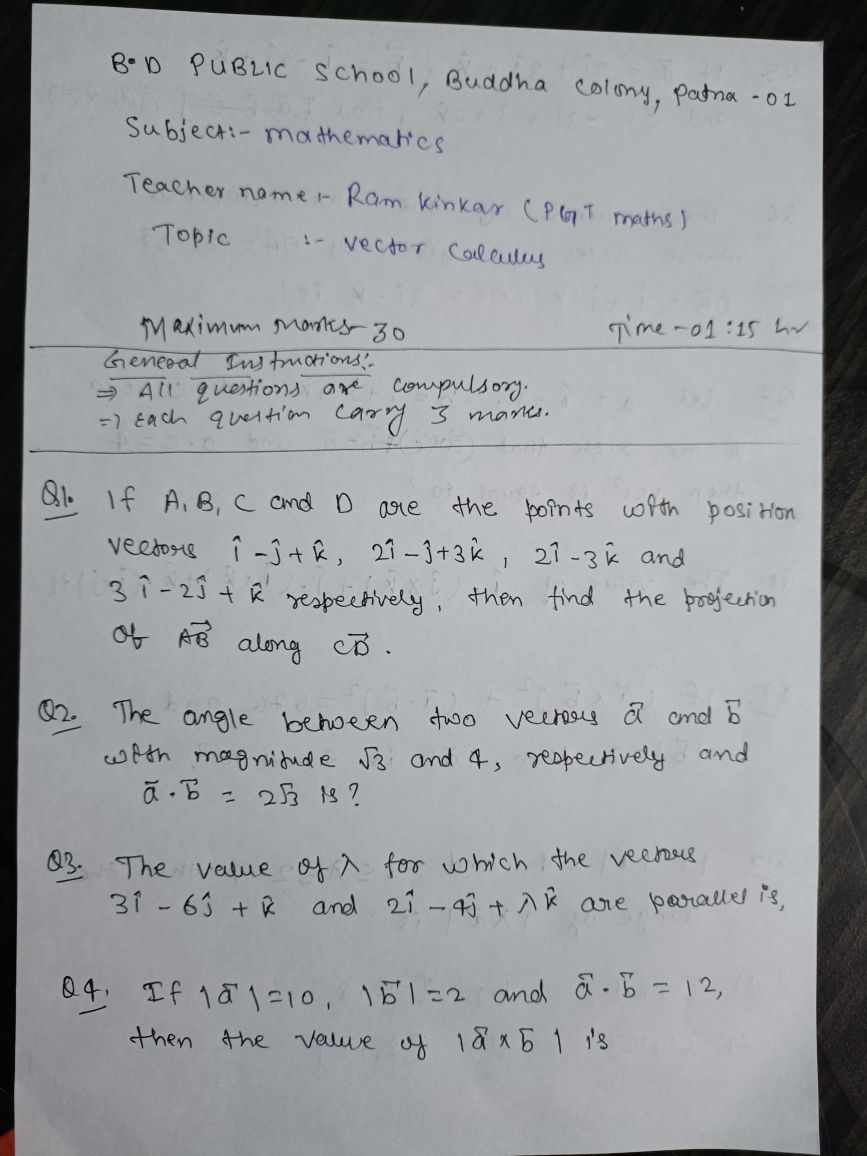 B.D PUBLIC School, Buddha Colony, Patna - 01
Subject:- mathematics
Teacher name :- Ram Kinkar (PGT maths)
Topic :- vector Calculus
Maximum Marks - 30 Time - 01:15 hr
General Instructions:-
⇒ All questions are compulsory.
⇒ Each question carry 3 marks.
Q1. If A, B, C and D are the points with position
vectors î - ĵ + k̂, 2î - ĵ + 3k̂, 2î - 3k̂ and
3î - 2ĵ + k̂ respectively, then find the projection
of AB⃗ along CD⃗.
Q2. The angle between two vectors a⃗ and b⃗
with magnitude √3 and 4, respectively and
a⃗ . b⃗ = 2√3 is?
Q3. The value of λ for which the vectors
3î - 6ĵ + k̂ and 2î - 4ĵ + λk̂ are parallel is,
Q4. If |a⃗| = 10, |b⃗| = 2 and a⃗ . b⃗ = 12,
then the value of |a⃗ x b⃗| is